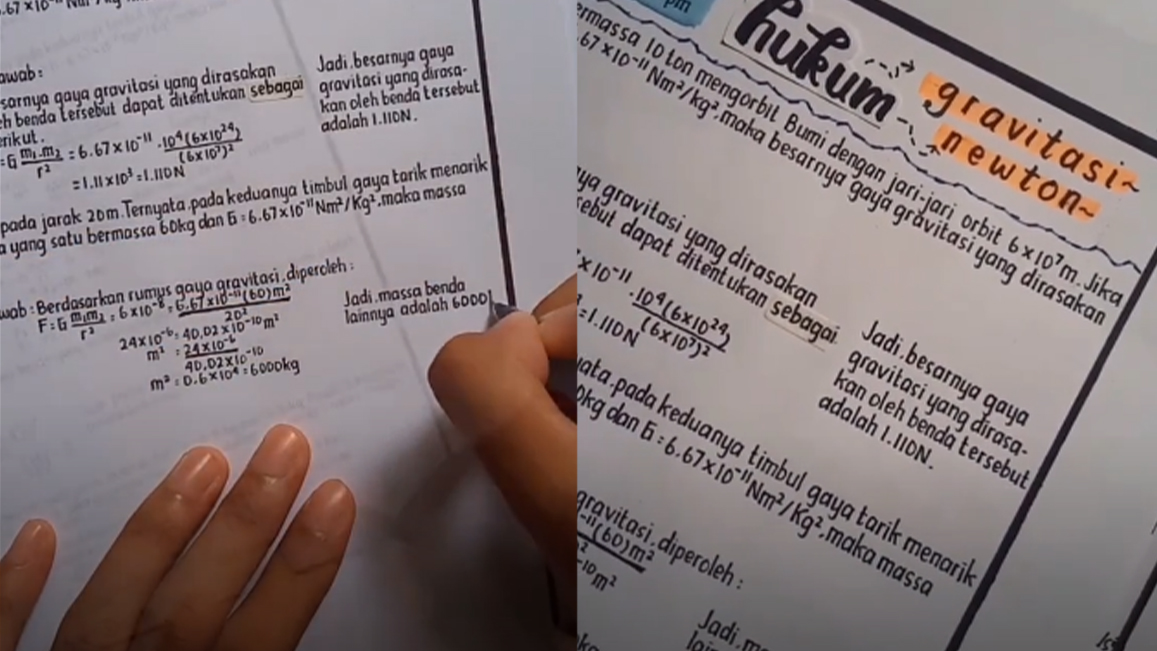 .67×10⁻¹¹
sarnya gaya gravitasi yang dirasakan
benda tersebut dapat ditentukan sebagai
=G m₁.m₂/r² = 6.67×10⁻¹¹ . 10⁴(6×10²⁴)/(6×10⁷)²
=1.11×10³=1.110N
Jadi.besarnya gaya
gravitasi yang dirasa-
kan oleh benda tersebut
adalah 1.110N.
pada jarak 20m.Ternyata.pada keduanya timbul gaya tarik menarik
yang satu bermassa 60kg dan G=6.67×10⁻¹¹Nm²/Kg²,maka massa
Berdasarkan rumus gaya gravitasi.diperoleh:
F=G m₁m₂/r² = 6×10⁻⁸ = 6.67×10⁻¹¹(60)m²/20²
24×10⁻⁶=40.02×10⁻¹⁰m²
m² = 24×10⁻⁶/40.02×10⁻¹⁰
m²=0.6×10⁴=6000kg
Jadi.massa benda
lainnya adalah 6000
pm
hukum
gravitasi~
newton~
ermassa 10 ton mengorbit Bumi dengan jari-jari orbit 6×10⁷m. Jika
.67×10⁻¹¹Nm²/kg².maka besarnya gaya gravitasi yang dirasakan
ya gravitasi yang dirasakan
sebut dapat ditentukan sebagai
×10⁻¹¹ . 10⁴(6×10²⁴)/(6×10⁷)²
=1.110N
Jadi.besarnya gaya
gravitasi yang dirasa-
kan oleh benda tersebut
adalah 1.110N.
yata.pada keduanya timbul gaya tarik menarik
0kg dan G=6.67×10⁻¹¹Nm²/Kg²,maka massa
gravitasi.diperoleh:
⁻¹¹(60)m²
⁻¹⁰m²
Jadi.m